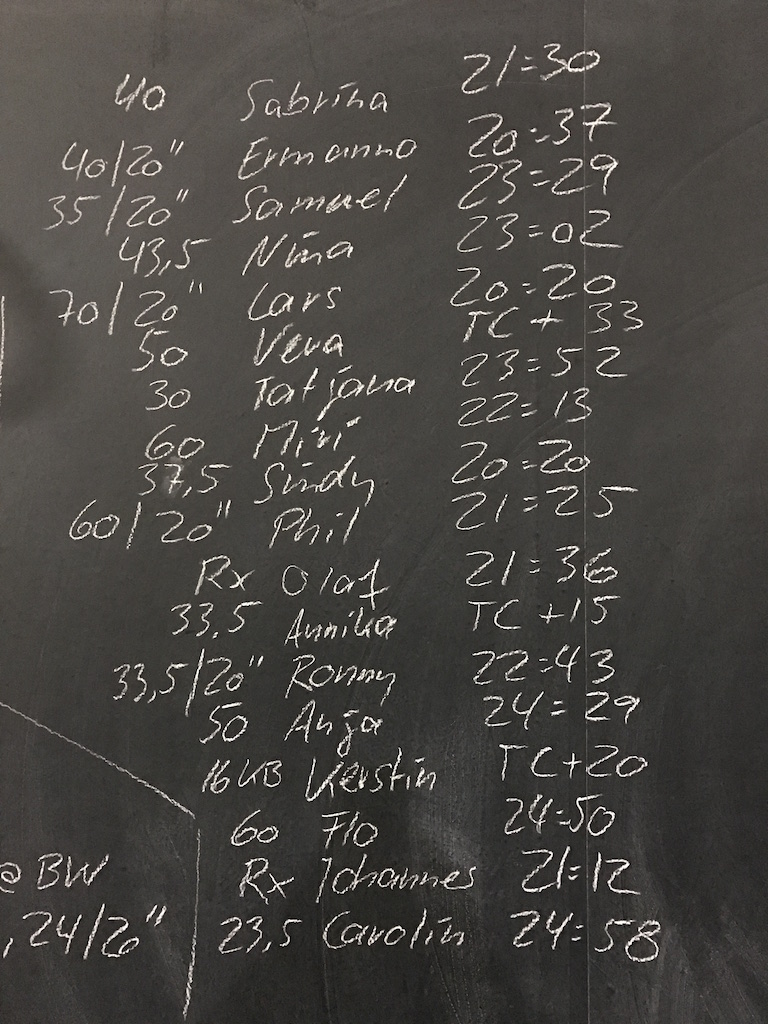 40 Sabrina 21:30
40/20" Ermanno 20:37
35/20" Samuel 23:29
43,5 Nina 23:02
70/20" Lars 20:20
50 Vera TC + 33
30 Tatjana 23:52
60 Miri 22:13
37,5 Sindy 20:20
60/20" Phil 21:25
Rx Olaf 21:36
33,5 Annika TC +15
33,5/20" Ronny 22:43
50 Anja 24:29
16 KB Kerstin TC+20
60 Flo 24:50
@ BW Rx Johannes 21:12
, 24/20" 23,5 Carolin 24:58